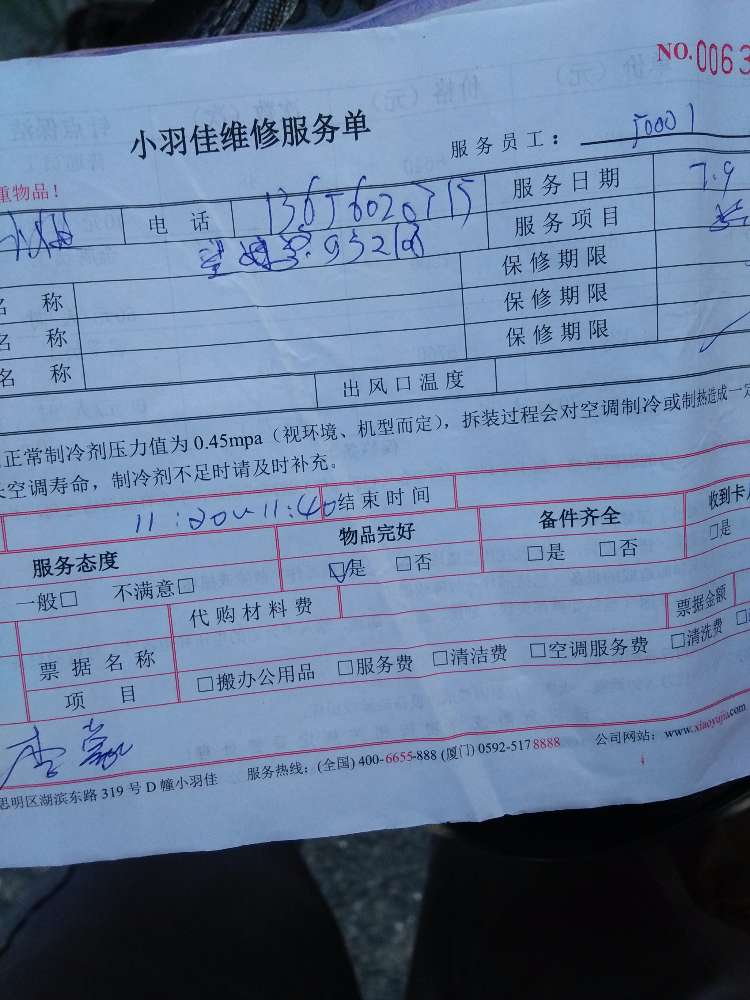 NO.0063
小羽佳维修服务单
服务员工： J0001
重物品！
电话 服务日期 7.9
932 服务项目
名称 保修期限
名称 保修期限
名称 保修期限
出风口温度
正常制冷剂压力值为0.45mpa（视环境、机型而定），拆装过程会对空调制冷或制热造成一定
空调寿命，制冷剂不足时请及时补充。
11:20~11:40 结束时间
服务态度 物品完好 备件齐全 收到卡
一般□ 不满意□ ☑是 □否 □是 □否 □是
代购材料费 票据金额
票据名称
项目 □搬办公用品 □服务费 □清洁费 □空调服务费 □清洗费
思明区湖滨东路319号D幢小羽佳 服务热线：(全国) 400-6655-888 (厦门) 0592-5178888 公司网站：www.xiaoyujia.com